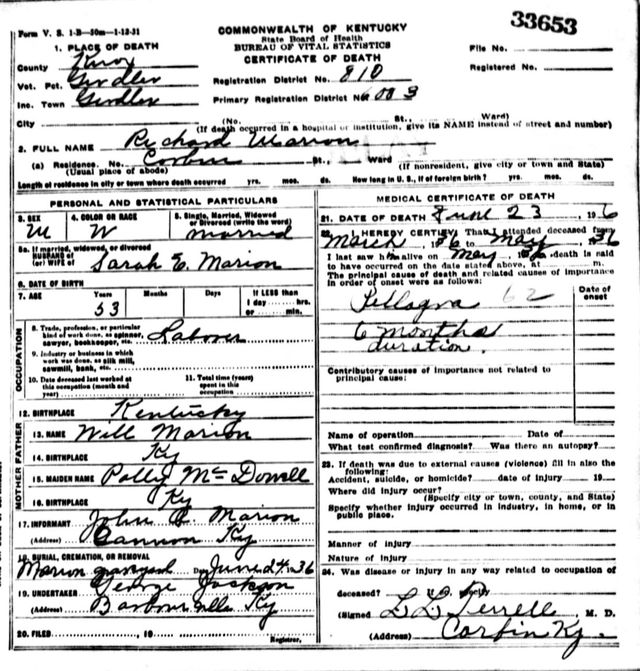 33653
Form V. S. 1-B—50m—1-12-31
COMMONWEALTH OF KENTUCKY
State Board of Health
BUREAU OF VITAL STATISTICS
CERTIFICATE OF DEATH
File No.
Registered No.
1. PLACE OF DEATH
County Knox
Vot. Pct. Girdler
Inc. Town Girdler
Registration District No. 810
Primary Registration District No. 6003
City (No. St., Ward)
(If death occurred in a hospital or institution, give its NAME instead of street and number)
2. FULL NAME Richard Marion
(a) Residence. No. Corbin St., Ward
(Usual place of abode) (If nonresident, give city or town and State)
Length of residence in city or town where death occurred yrs. mos. ds. How long in U. S., if of foreign birth? yrs. mos. ds.
PERSONAL AND STATISTICAL PARTICULARS
3. SEX M
4. COLOR OR RACE W
5. Single, Married, Widowed or Divorced (write the word) Married
5a. If married, widowed, or divorced
HUSBAND of
(or) WIFE of Sarah E. Marion
6. DATE OF BIRTH
7. AGE Years Months Days If LESS than
53 1 day hrs.
or min.
OCCUPATION
8. Trade, profession, or particular
kind of work done, as spinner,
sawyer, bookkeeper, etc. Laborer
9. Industry or business in which
work was done, as silk mill,
sawmill, bank, etc.
10. Date deceased last worked at
this occupation (month and
year)
11. Total time (years)
spent in this
occupation
12. BIRTHPLACE Kentucky
FATHER
13. NAME Will Marion
14. BIRTHPLACE Ky
MOTHER
15. MAIDEN NAME Polly McDowell
16. BIRTHPLACE Ky
17. INFORMANT John Marion
(Address) Cannon Ky
18. BURIAL, CREMATION, OR REMOVAL
Marion graveyard Date June 24 1936
19. UNDERTAKER George Jackson
(Address) Barbourville Ky
20. FILED , 19
Registrar.
MEDICAL CERTIFICATE OF DEATH
21. DATE OF DEATH June 23, 1936
22. I HEREBY CERTIFY, That I attended deceased from
March 1936 to May 1936
I last saw him alive on May 1936 death is said
to have occurred on the date stated above, at m.
The principal cause of death and related causes of importance
in order of onset were as follows:
Date of
onset
Pellagra 62
6 months
duration.
Contributory causes of importance not related to
principal cause:
Name of operation Date of
What test confirmed diagnosis? Was there an autopsy?
23. If death was due to external causes (violence) fill in also the
following:
Accident, suicide, or homicide? date of injury 19
Where did injury occur?
(Specify city or town, county, and State)
Specify whether injury occurred in industry, in home, or in
public place.
Manner of injury
Nature of injury
24. Was disease or injury in any way related to occupation of
deceased?
(Signed) L L Terrell, M. D.
(Address) Corbin Ky.